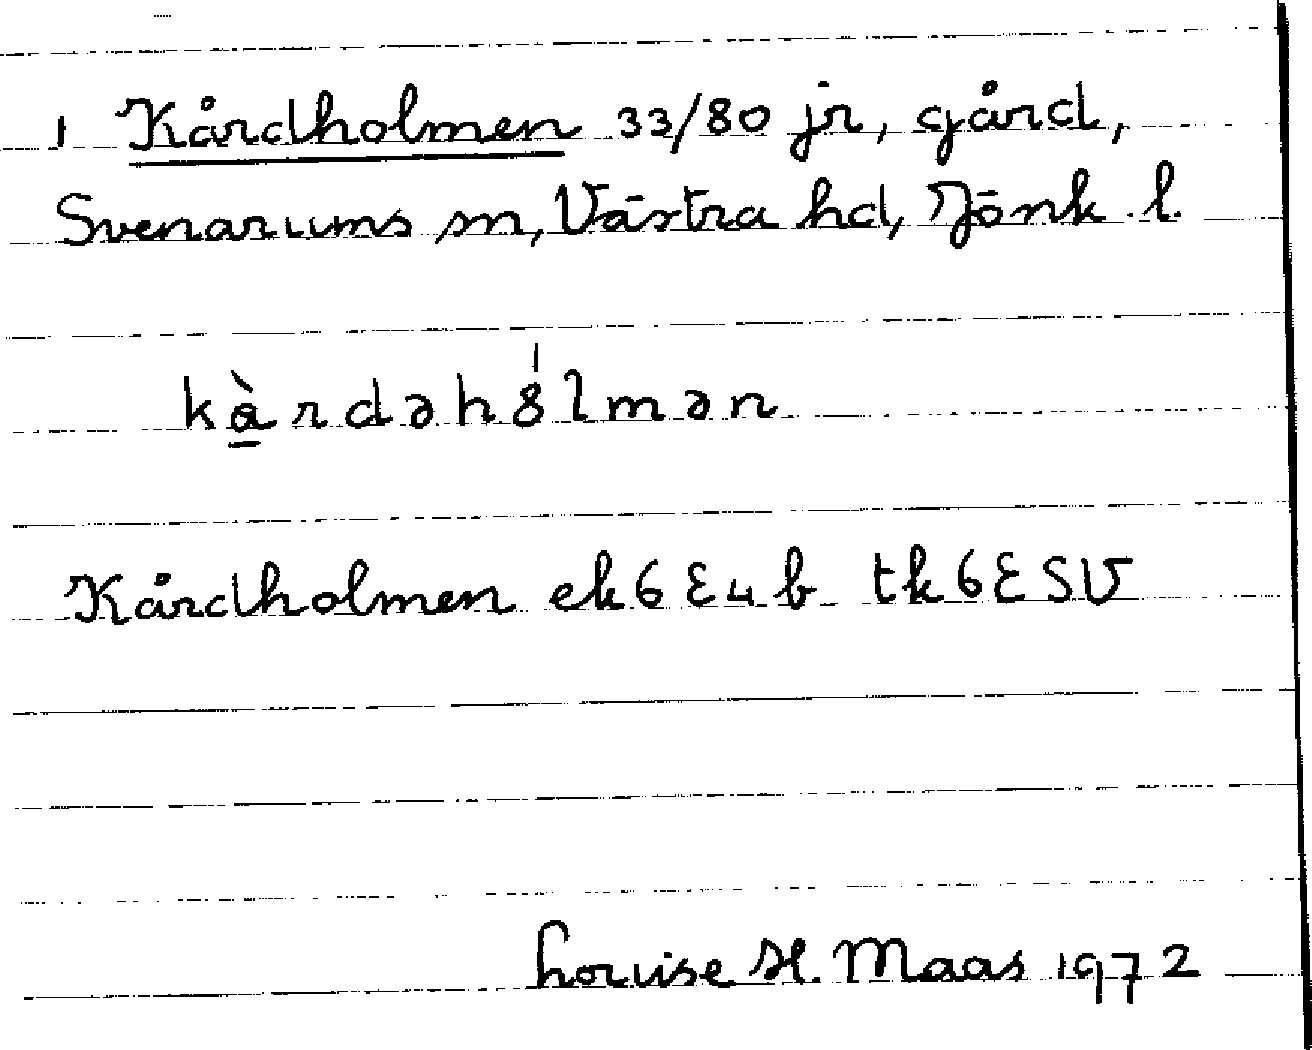 1 Kårdholmen 33/80 jr, gård,
Svenarums sn, Västra hd, Jönk. l.
kàrdəhȯ́lmən
Kårdholmen ek 6 E 4 b tk 6 E SV
Louise H. Maas 1972